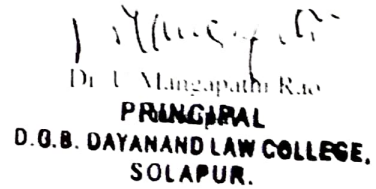 Dr. U. Mangapathi Rao
PRINCIPAL
D.G.B. DAYANAND LAW COLLEGE,
SOLAPUR.